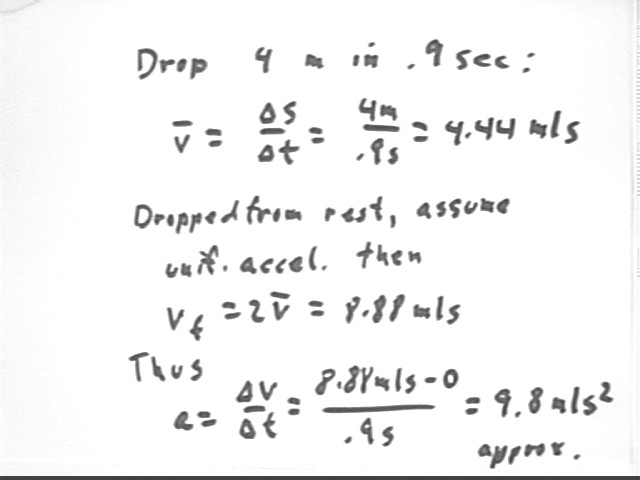 Drop 4 m in .9 sec:
v̄ = Δs/Δt = 4m/.9s = 4.44 m/s
Dropped from rest, assume
unif. accel. then
v_f = 2v̄ = 8.88 m/s
Thus
a = Δv/Δt = 8.88 m/s - 0/.9s = 9.8 m/s²
approx.